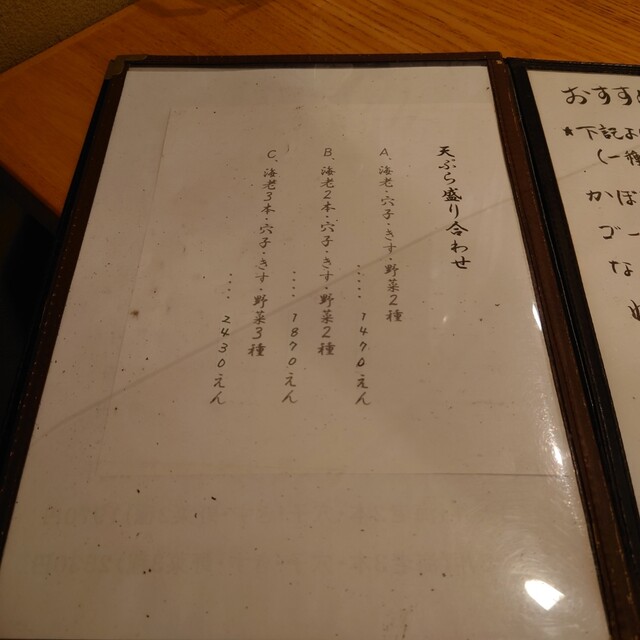 天ぷら盛り合わせ
A、海老・穴子・きす・野菜2種
・・・・1470えん
B、海老2本・穴子・きす・野菜2種
・・・・1870えん
C、海老3本・穴子・きす・野菜3種
・・・・2430えん
おすすめ
★下記よ
かぼ
ゴー
な